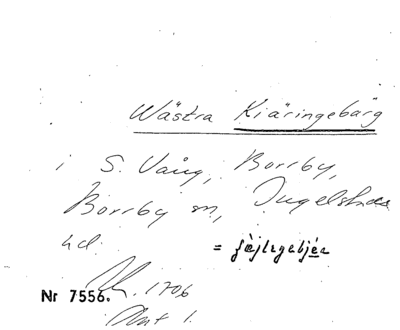 Wästra Kiäringebärg
i S. Vång, Borrby,
Borrby sn, Ingelstads
hd.
=
1706
Nr 7556.
Akt 1.